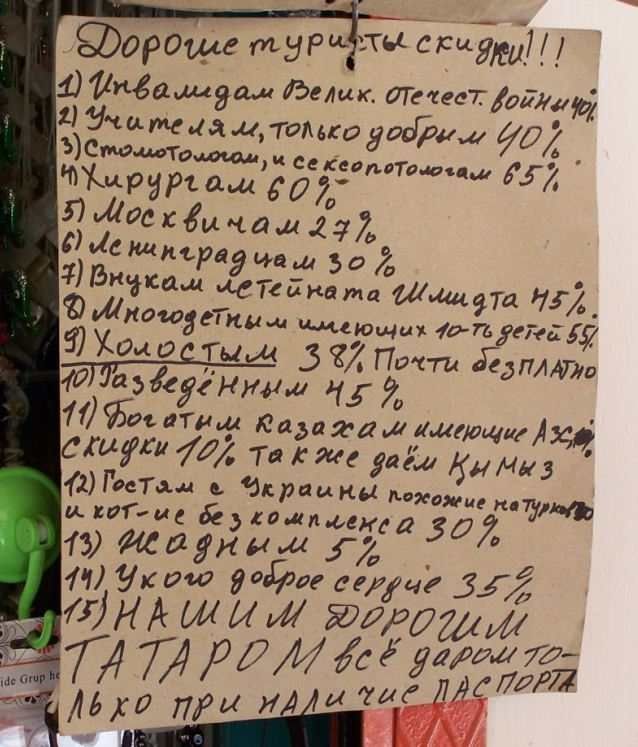 Дорогие туристы скидки!!!
1) Инвалидам Велик. отечест. войны 40%
2) Учителям, только добрым 40%
3) Стомотологам, и сексопотологам 65%
4) Хирургам 60%
5) Москвичам 27%
6) Ленинградцам 30%
7) Внукам летейната Шмидта 45%.
8) Многодетным имеющих 10-ть детей 55%
9) Холостым 38% Почти безПЛАТНО
10) Разведённым 45%
11) Богатым казахам имеющие АЗС,
скидки 10% также даём Қымыз
12) Гостям с Украины похожие на турков
и кот-ие без комплекса 30%
13) Жадным 5%
14) У кого доброе сердце 35%
15) НАШИМ ДОРОГИМ
ТАТАРОМ всё даром то-
лько при наличие ПАСПОРТА
ide Grup he